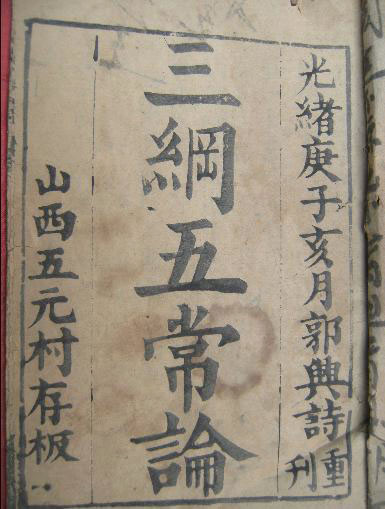 光緒庚子亥月郭典詩重刊
三綱五常論
山西五元村存板